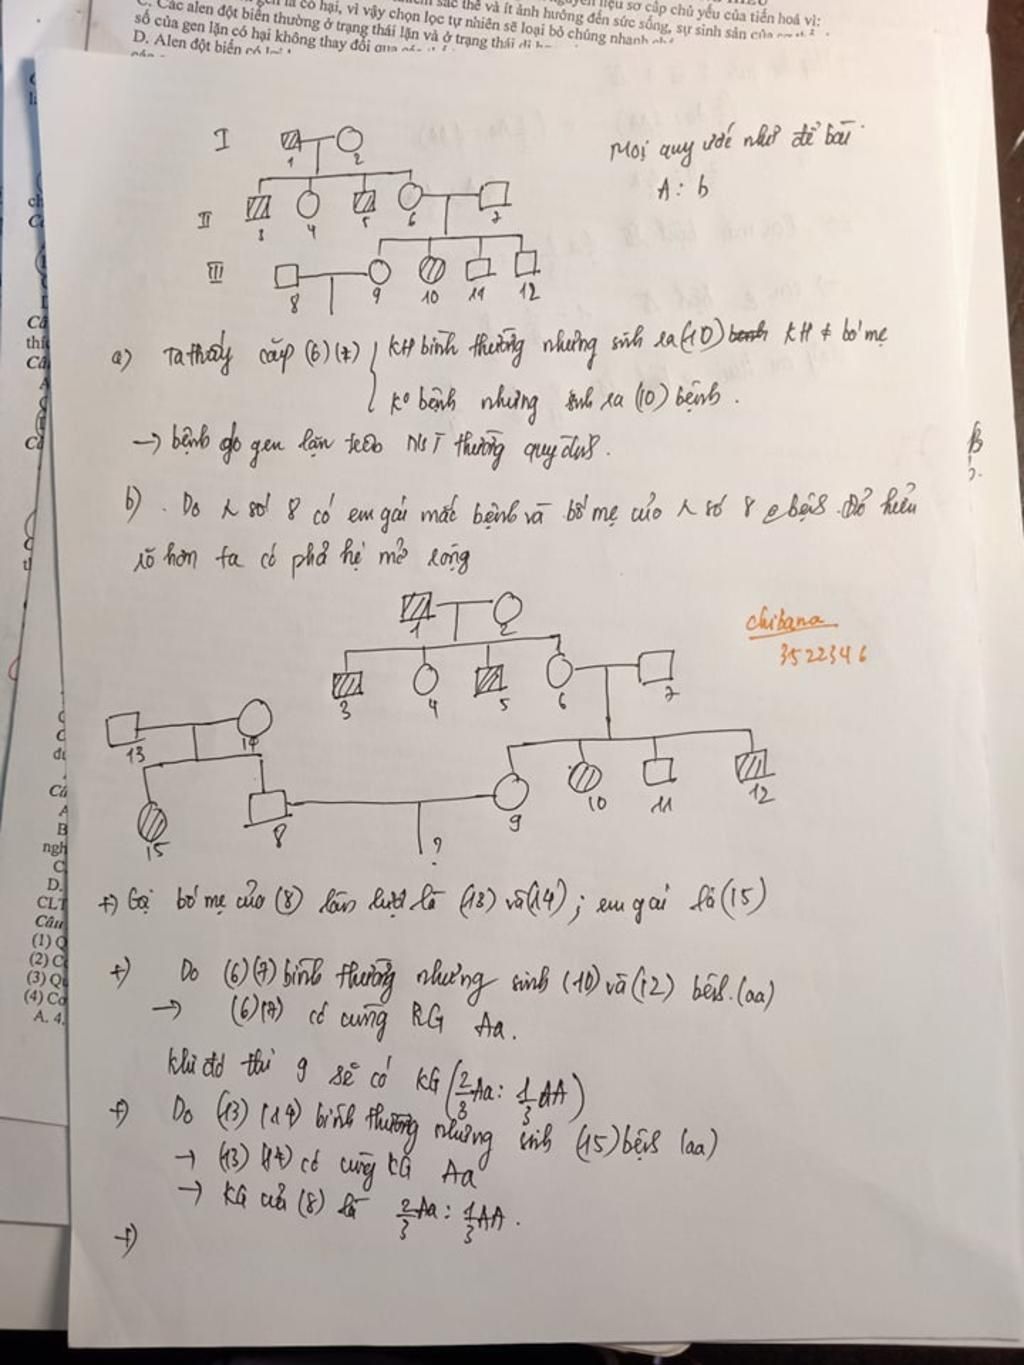 C. Các alen đột biến thường ở trạng thái lặn và ở trạng thái
số của gen lặn có hại không thay đổi qua các
D. Alen đột biến có lợi
có hại, vì vậy chọn lọc tự nhiên sẽ loại bỏ chúng nhanh
sắc thể và ít ảnh hưởng đến sức sống, sự sinh sản của
liệu sơ cấp chủ yếu của tiến hoá vì:
I
1 2
Mọi quy ước như đề bài
A: b
II
3 4 5 6 7
III
8 9 10 11 12
a) Ta thấy cặp (6)(7) KH bình thường nhưng sinh ra (10) KH ≠ bố mẹ
K° bệnh nhưng sinh ra (10) bệnh.
→ bệnh do gen lặn trên NST thường quy định.
b) . Do số 8 có em gái mắc bệnh và bố mẹ của số 8 bệnh. Để hiểu
rõ hơn ta có phả hệ mở rộng
1 2
chibana
3522346
3 4 5 6 7
13 14
15 8 9 10 11 12
?
+) Gọi bố mẹ của (8) lần lượt là (13) và (14); em gái là (15)
+) Do (6)(7) bình thường nhưng sinh (10) và (12) bệnh (aa)
→ (6)(7) có cùng KG Aa.
Khi đó thì 9 sẽ có KG (2/3 Aa: 1/3 AA)
+) Do (13) (14) bình thường nhưng sinh (15) bệnh (aa)
→ (13) (14) có cùng KG Aa
→ KG của (8) là 2/3 Aa: 1/3 AA.
+)
B
D.
CLT
Câu
(1) Q
(2) C
(3) Qu
(4) Co
A. 4.